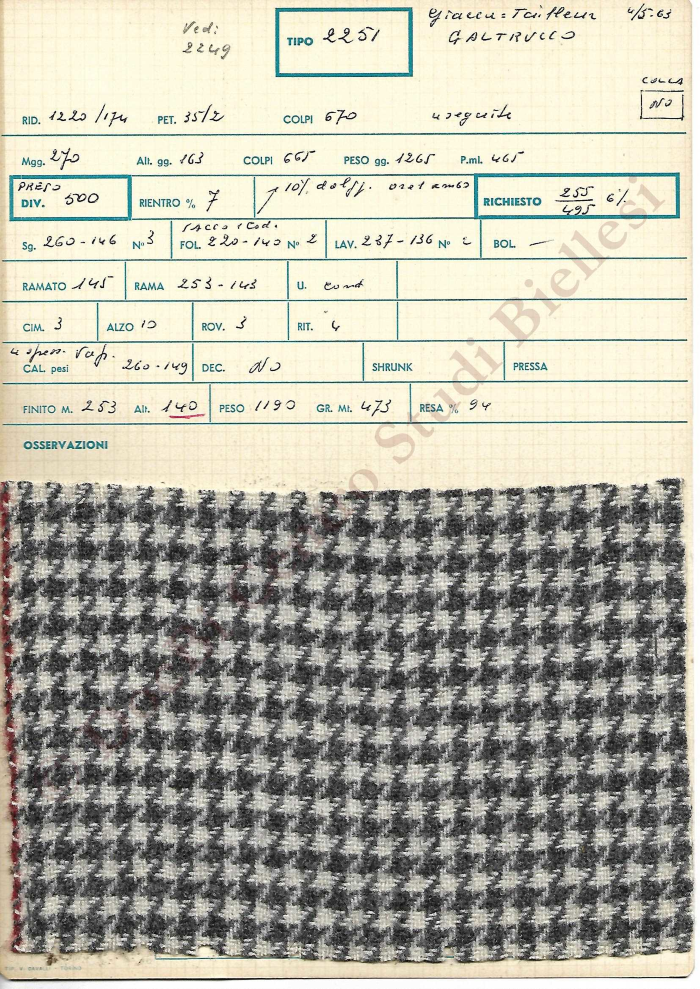 Vedi
2249
TIPO 2251
Giacca = Tailleur 4/5-63
GALTRUCCO
COLLA
NO
RID. 1220/174 PET. 35/2 COLPI 670 eseguite
Mgg. 270 Alt. gg. 163 COLPI 665 PESO gg. 1265 P.ml. 465
PRESO
DIV. 500 RIENTRO % 7 10% RICHIESTO 255/495 6%
SACCO 1 Cod.
Sg. 260-146 N° 3 FOL. 220-140 N° 2 LAV. 237-136 N° 2 BOL. —
RAMATO 145 RAMA 253-143 U. cond
CIM. 3 ALZO 10 ROV. 3 RIT. 4
Vap.
CAL. pesi 260-149 DEC. NO SHRUNK PRESSA
FINITO M. 253 Alt. 140 PESO 1190 GR. Mt. 473 RESA % 94
OSSERVAZIONI
Centro Studi Biellesi